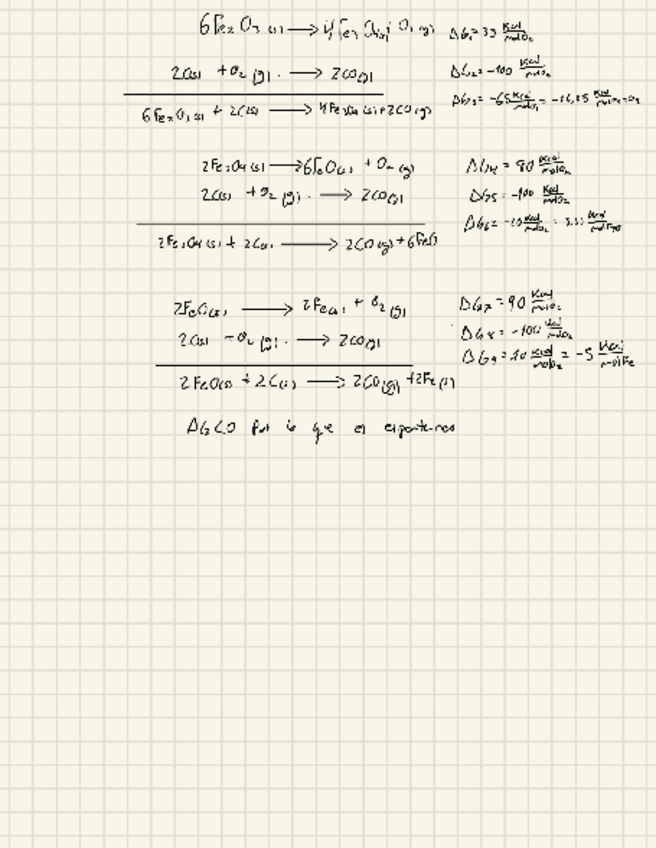 6Fe₂O₃(s) → 4Fe₃O₄(s) + O₂(g) ΔG₁ = 35 Kcal/molO₂
2C(s) + O₂(g) → 2CO(g) ΔG₂ = -100 Kcal/molO₂
6Fe₂O₃(s) + 2C(s) → 4Fe₃O₄(s) + 2CO(g) ΔG₃ = -65 Kcal/molO₂ = -16,25
2Fe₃O₄(s) → 6FeO(s) + O₂(g) ΔG₄ = 80 Kcal/molO₂
2C(s) + O₂(g) → 2CO(g) ΔG₅ = -100 Kcal/molO₂
2Fe₃O₄(s) + 2C(s) → 2CO(g) + 6FeO ΔG₆ = -20 Kcal/molO₂
2FeO(s) → 2Fe(s) + O₂(g) ΔG₇ = 90 Kcal/molO₂
2C(s) + O₂(g) → 2CO(g) ΔG₈ = -100 Kcal/molO₂
2FeO(s) + 2C(s) → 2CO(g) + 2Fe(s) ΔG₉ = 10 Kcal/molO₂ = -5 Kcal/molFe
ΔG<0 Por lo que es